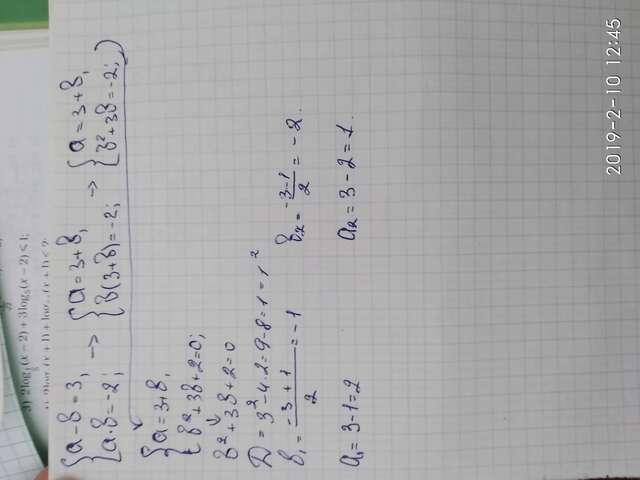 3) 2log₁/₅(x − 2) + 3log₅(x − 2) ⩽ 1;
{a − b = 3, → {a = 3 + b, → {a = 3 + b,
a · b = −2; b(3 + b) = −2; b² + 3b = −2;
{a = 3 + b,
b² + 3b + 2 = 0;
b² + 3b + 2 = 0
D = 3² − 4 · 2 = 9 − 8 = 1 = 1²
b₁ = (−3 + 1)/2 = −1 b₂ = (−3 − 1)/2 = −2.
a₁ = 3 − 1 = 2 a₂ = 3 − 2 = 1.
2019-2-10 12:45